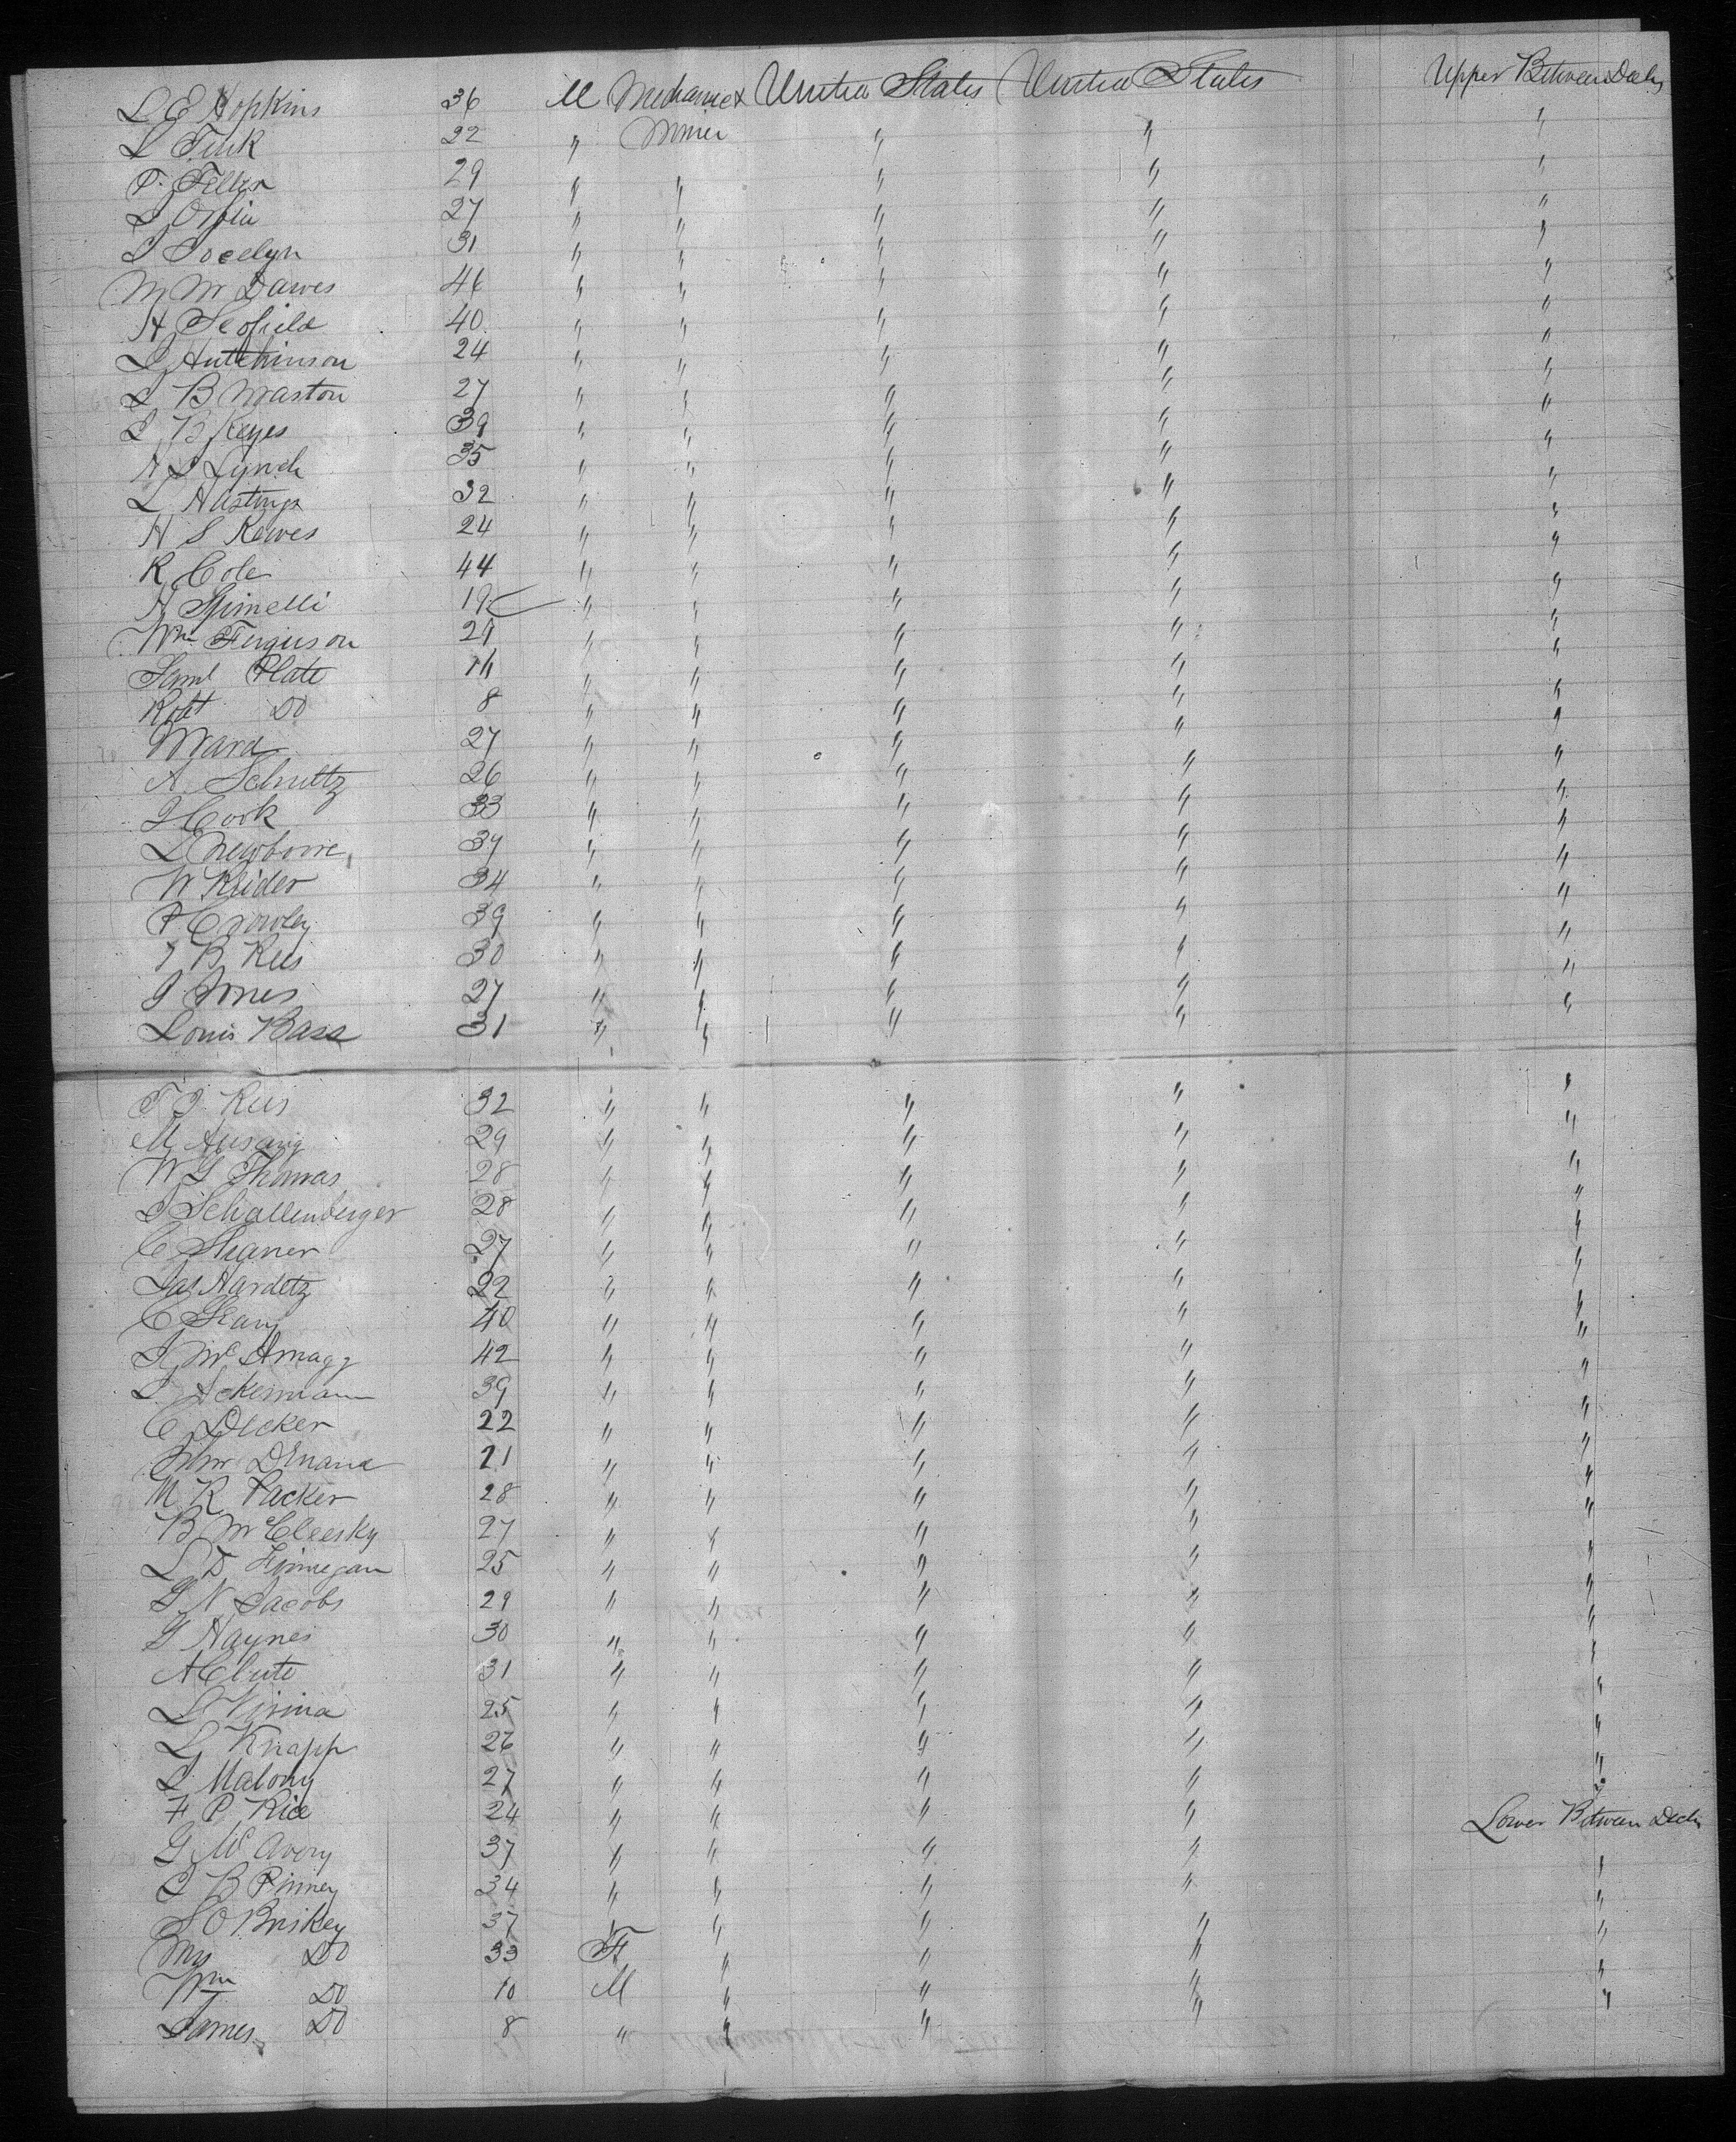 L E Hopkins 36 M Mechanic & United States United States Upper Between Decks
L Fink 22 " Miner " " "
P. Feller 29 " " " " "
27 " " " " "
S Jocelyn 31 " " " " "
M M Dawes 46 " " " " "
H Scofield 40 " " " " "
J Hutchinson 24 " " " " "
L B Maston 27 " " " " "
L B Keyes 39 " " " " "
H L Lynch 35 " " " " "
L Hastings 32 " " " " "
H S Reeves 24 " " " " "
R Cole 44 " " " " "
H Spinelli 19 " " " " "
Wm Ferguson 29 " " " " "
Saml Plate 11 " " " " "
Robt Do 8 " " " " "
Ward 27 " " " " "
A. Schultz 26 " " " " "
J Cook 33 " " " " "
L Newborne 37 " " " " "
W Reider 34 " " " " "
P Crowley 39 " " " " "
T B Rees 30 " " " " "
J Jones 27 " " " " "
Louis Bass 31 " " " " "
T J. Rees 32 " " " " "
M 29 " " " " "
W G Thomas 28 " " " " "
J Schallenberger 28 " " " " "
C Shaner 27 " " " " "
Jas Hardetz 22 " " " " "
C Geary 40 " " " " "
J Mc 42 " " " " "
L. Ackermann 39 " " " " "
C Decker 22 " " " " "
21 " " " " "
M R Packer 28 " " " " "
B McCleesky 27 " " " " "
L D Finnegan 25 " " " " "
G N Jacobs 29 " " " " "
G Haynes 30 " " " " "
A Clute 31 " " " " "
L 25 " " " " "
L Knapp 26 " " " " "
L Malony 27 " " " " "
F P Rice 24 " " " " Lower Between Decks
G W Avory 37 " " " " "
J B Pinney 34 " " " " "
S O Briskey 37 " " " " "
Mrs Do 33 F " " " "
Wm Do 10 M " " " "
James Do 8 " " " "